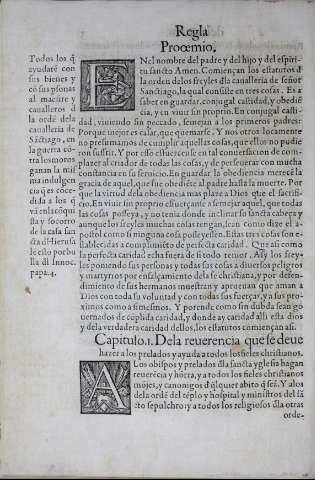 Regla
Proemio.
Todos los q̃
ayudarẽ con
sus bienes y
cõ sus p̃sonas
al maestre y
caualleros d̃
la ordẽ dela
caualleria de
Sãctiago, en
la guerra cõ-
tra los moros
ganan la mis
ma indulgen
cia q̃ es cõce-
dida a los q̃
vã en la cõqui
sta y socorro
de la casa san
cta d̃ Hierusa
lẽ esto por bu
lla d̃l Innoc.
papa. 4.
EN el nombre del padre y del hijo y del espiri-
tu sancto Amen. Comiençan los estatutos d̃
la orden de los freyles dla caualleria de señor
Sanctiago, la qual consiste en tres cosas. Es a
saber en guardar, conjugal castidad, y obediẽ
cia, y en viuir sin proprio. En conjugal casti-
dad, viuiendo sin peccado, semejan a los primeros padres:
Porque mejor es casar, que quemarse. Y nos otros locamente
no presumamos de cumplir aquellas cosas, que ellos no pudie
ron suffrir. Y por esto esfuercense en tal conuersacion de com-
plazer al criador de todas las cosas, y de perseuerar con mucha
constancia en su seruicio. En guardar la obediencia merecẽ la
gracia de aquel, que fue obediẽte al padre hasta la muerte. Por
que la virtud dela obediencia mas plaze a Dios que el sacrifi-
cio. En viuir sin proprio esfuerçante a semejar aquel, que todas
las cosas posseya, y no tenia donde inclinar su sancta cabeça y
aunque los freyles muchas cosas tengan, sean como dize el a-
postol como si ninguna cosa posseyessen. Estas tres cosas son e-
stablecidas a complimiẽto de perfecta caridad. Que assi como
la perfecta caridad echa fuera de si todo temor. Assi los frey-
les poniendo sus personas y todas sus cosas a diuersos peligros
y martyrios por ensalçamiento dela fe christiana, y por defen-
dimiento de sus hermanos muestran y aprueuan que aman a
Dios con toda su voluntad y con todas sus fuerças, y a sus pro-
ximos como a si mesmos. Y porende como sin dubda sean go
uernados de cũplida caridad, y donde ay caridad alli esta dios
y dela verdadera caridad dellos, los estatutos comiençan assi.
Capitulo. 1. Dela reuerencia que se deue
hazer a los prelados y ayuda a todos los fieles christianos.
A Los obispos y prelados dla sancta yglesia hagan
reuerẽcia y hõrra, y a todos los fieles christianos
mõjes, y canonigos d̃ qlquier abito q̃ seã. Y alos
dela ordẽ del tẽplo y hospital y ministros del sã
cto sepulchro: y a todos los religiosos dla otras
orde-